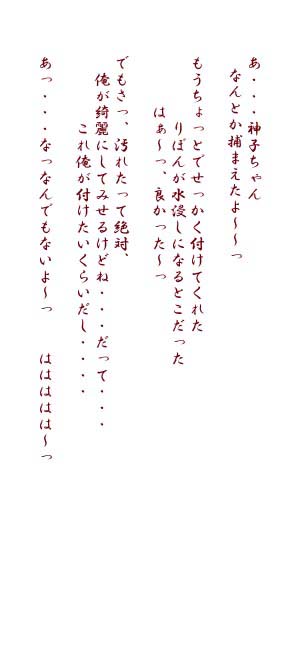 あ・・・神子ちゃん
なんとか捕まえたよ～～っ
もうちょっとでせっかく付けてくれた
りぼんが水浸しになるとこだった
はぁ～っ、良かった～っ
でもさっ、汚れたって絶対、
俺が綺麗にしてみせるけどね・・・だって・・・
これ俺が付けたいくらいだし・・・・
あっ・・・なっなんでもないよ～っ　はははははは～っ